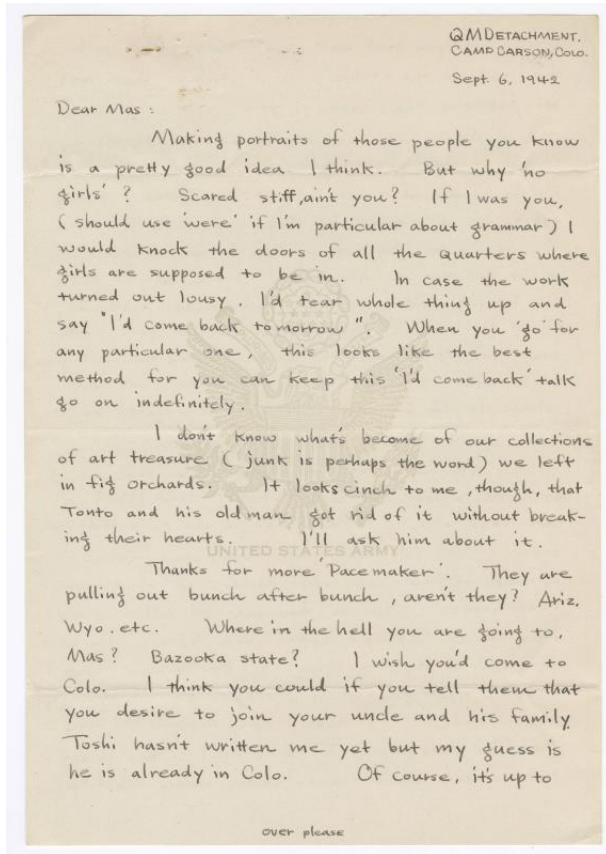 QM DETACHMENT.
CAMP CARSON, COLO.
Sept. 6, 1942
Dear Mas :
Making portraits of those people you know
is a pretty good idea I think. But why 'no
girls' ? Scared stiff, ain't you? If I was you,
( should use 'were' if I'm particular about grammar ) I
would knock the doors of all the quarters where
girls are supposed to be in. In case the work
turned out lousy, I'd tear whole thing up and
say "I'd come back tomorrow". When you 'go' for
any particular one, this looks like the best
method for you can keep this 'I'd come back' talk
go on indefinitely.
I don't know what's become of our collections
of art treasure ( junk is perhaps the word ) we left
in fig orchards. It looks cinch to me, though, that
Tonto and his old man got rid of it without break-
ing their hearts. I'll ask him about it.
UNITED STATES ARMY
Thanks for more 'Pacemaker'. They are
pulling out bunch after bunch, aren't they? Ariz.
Wyo. etc. Where in the hell you are going to,
Mas? Bazooka state? I wish you'd come to
Colo. I think you could if you tell them that
you desire to join your uncle and his family.
Toshi hasn't written me yet but my guess is
he is already in Colo. Of course, it's up to
over please